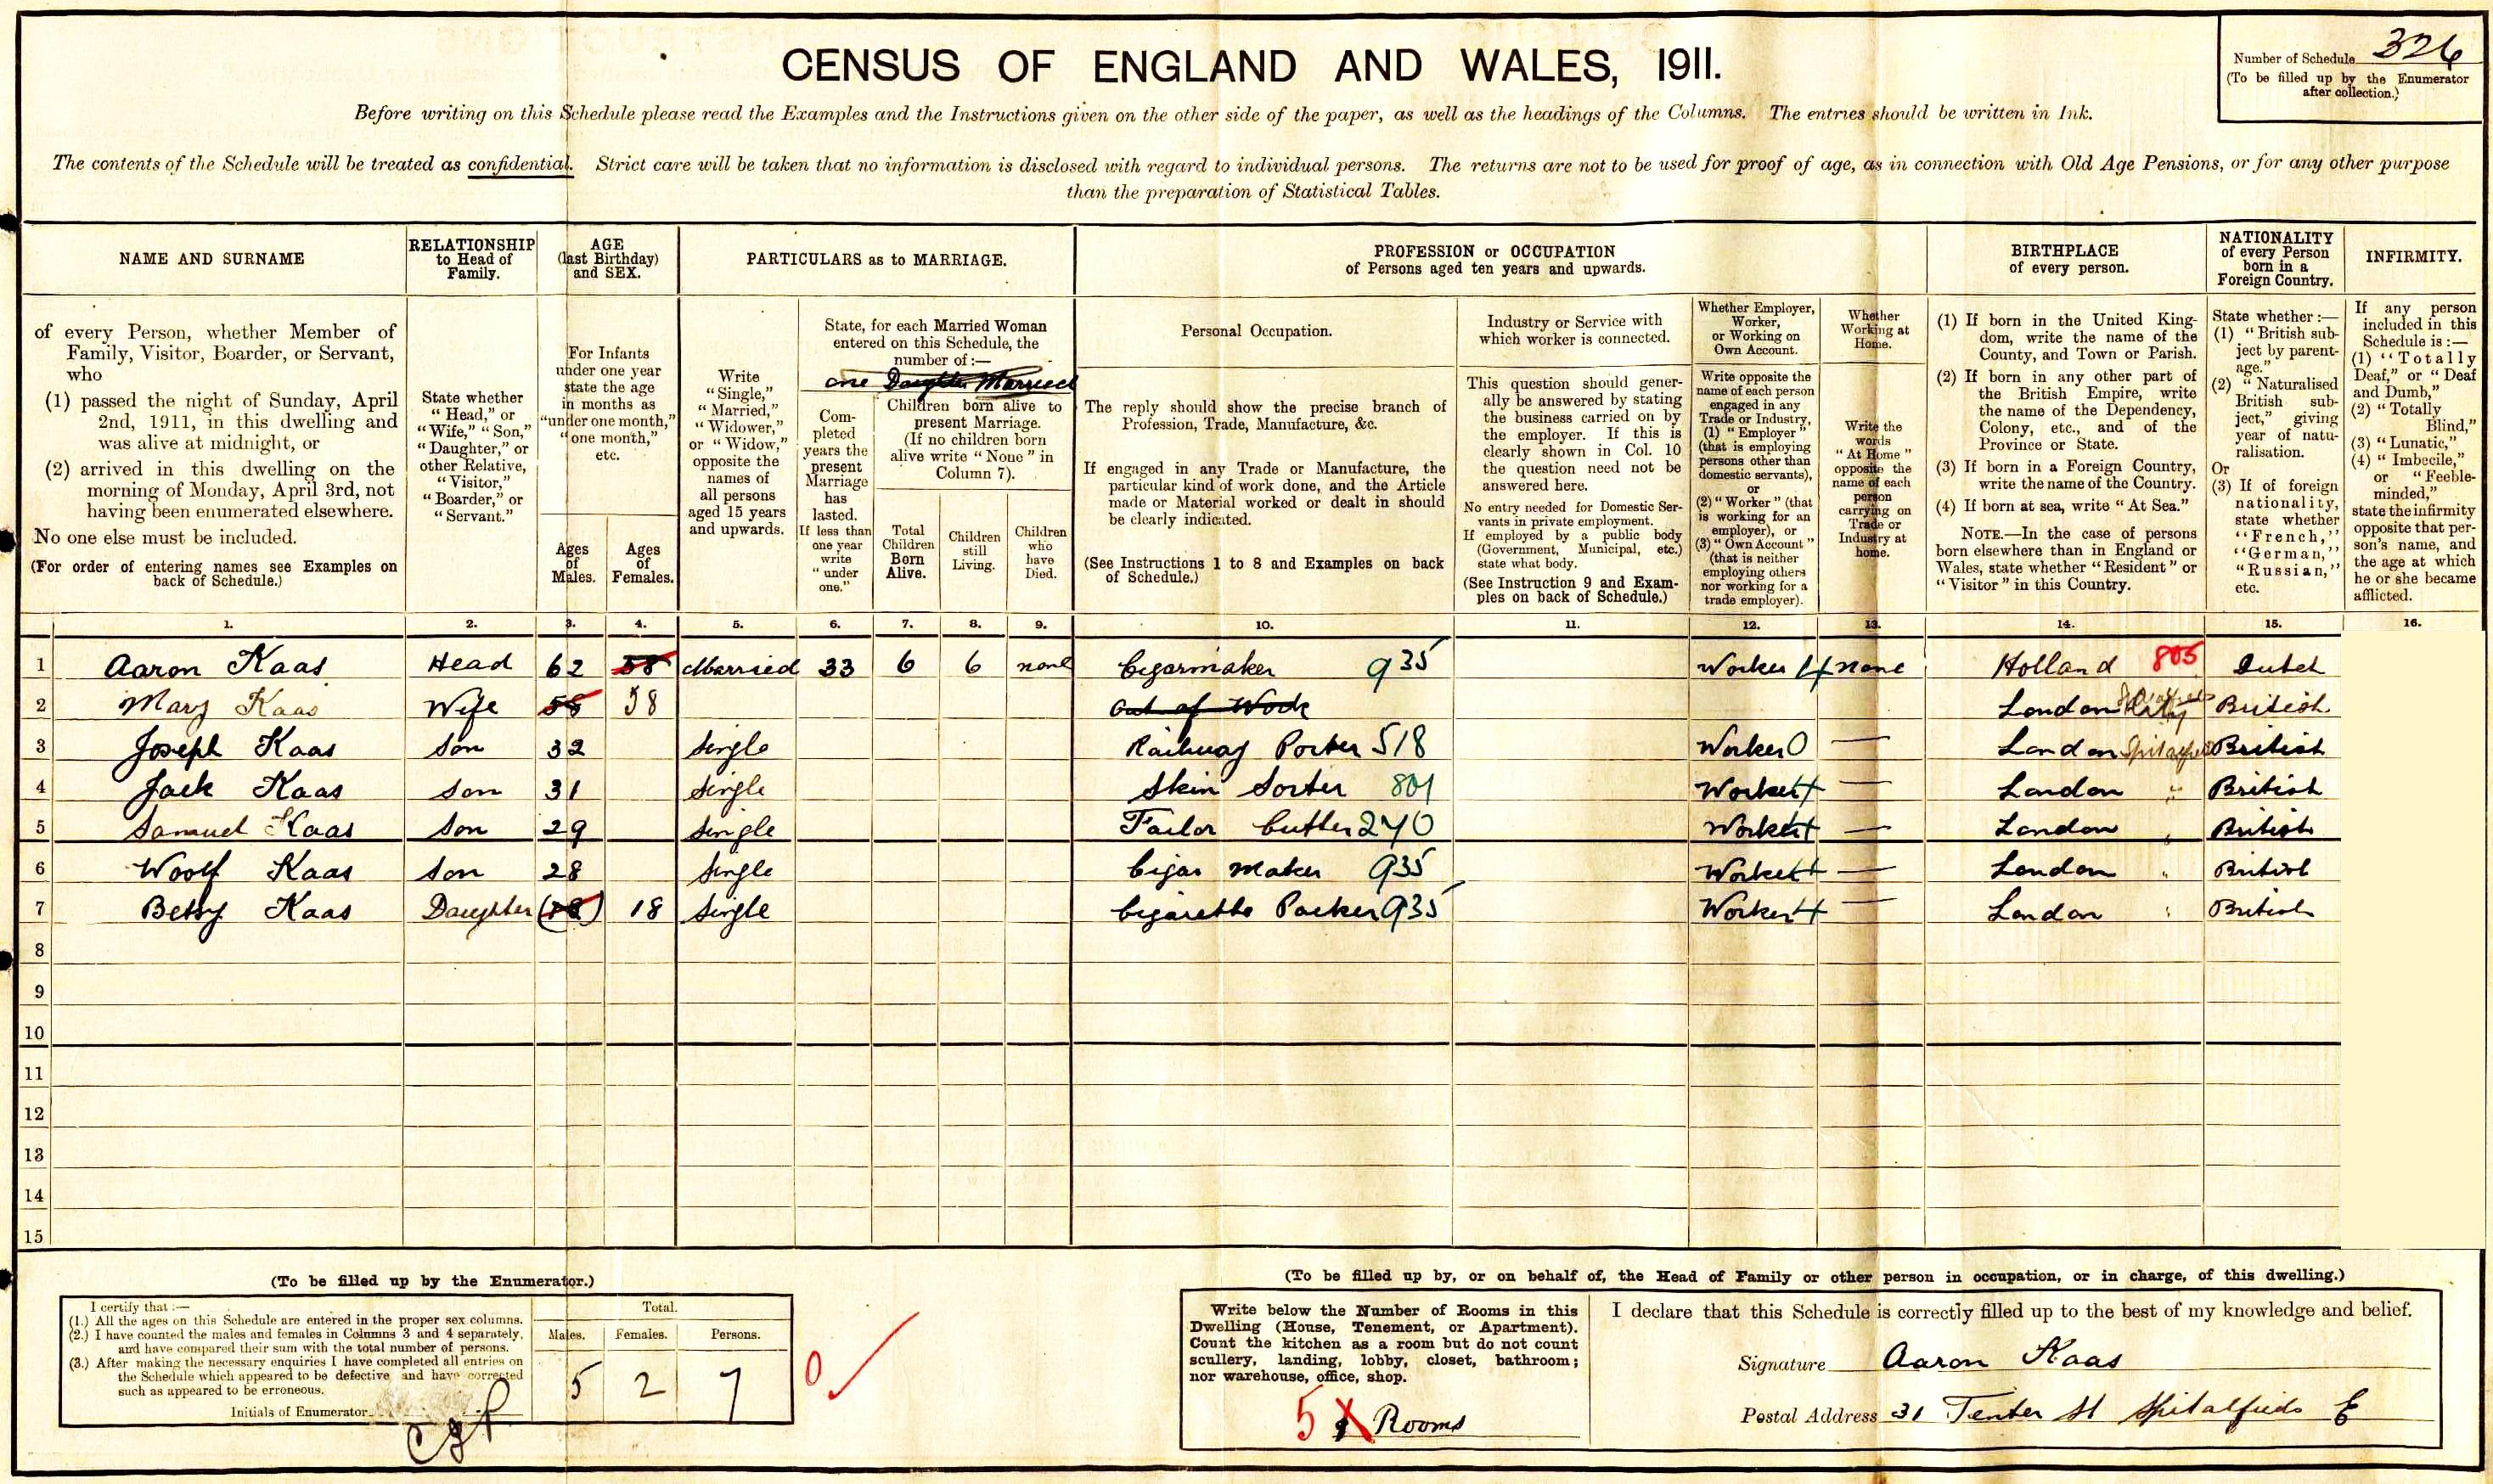 CENSUS OF ENGLAND AND WALES, 1911.
Number of Schedule 326
(To be filled up by the Enumerator
after collection.)
Before writing on this Schedule please read the Examples and the Instructions given on the other side of the paper, as well as the headings of the Columns. The entries should be written in Ink.
The contents of the Schedule will be treated as confidential. Strict care will be taken that no information is disclosed with regard to individual persons. The returns are not to be used for proof of age, as in connection with Old Age Pensions, or for any other purpose
than the preparation of Statistical Tables.
NAME AND SURNAME
of every Person, whether Member of
Family, Visitor, Boarder, or Servant,
who
(1) passed the night of Sunday, April
2nd, 1911, in this dwelling and
was alive at midnight, or
(2) arrived in this dwelling on the
morning of Monday, April 3rd, not
having been enumerated elsewhere.
No one else must be included.
(For order of entering names see Examples on
back of Schedule.)
RELATIONSHIP
to Head of
Family.
State whether
"Head," or
"Wife," "Son,"
"Daughter," or
other Relative,
"Visitor,"
"Boarder," or
"Servant."
AGE
(last Birthday)
and SEX.
For Infants
under one year
state the age
in months as
"under one month,"
"one month,"
etc.
Ages
of
Males.
Ages
of
Females.
PARTICULARS as to MARRIAGE.
Write
"Single,"
"Married,"
"Widower,"
or "Widow,"
opposite the
names of
all persons
aged 15 years
and upwards.
State, for each Married Woman
entered on this Schedule, the
number of :—
one Daughter Married
Com-
pleted
years the
present
Marriage
has
lasted.
If less than
one year
write
"under
one."
Children born alive to
present Marriage.
(If no children born
alive write "None" in
Column 7).
Total
Children
Born
Alive.
Children
still
Living.
Children
who
have
Died.
PROFESSION or OCCUPATION
of Persons aged ten years and upwards.
Personal Occupation.
The reply should show the precise branch of
Profession, Trade, Manufacture, &c.
If engaged in any Trade or Manufacture, the
particular kind of work done, and the Article
made or Material worked or dealt in should
be clearly indicated.
(See Instructions 1 to 8 and Examples on back
of Schedule.)
Industry or Service with
which worker is connected.
This question should gener-
ally be answered by stating
the business carried on by
the employer. If this is
clearly shown in Col. 10
the question need not be
answered here.
No entry needed for Domestic Ser-
vants in private employment.
If employed by a public body
(Government, Municipal, etc.)
state what body.
(See Instruction 9 and Exam-
ples on back of Schedule.)
Whether Employer,
Worker,
or Working on
Own Account.
Write opposite the
name of each person
engaged in any
Trade or Industry,
(1) "Employer"
(that is employing
persons other than
domestic servants),
or
(2) "Worker" (that
is working for an
employer), or
(3) "Own Account"
(that is neither
employing others
nor working for a
trade employer).
Whether
Working at
Home.
Write the
words
"At Home"
opposite the
name of each
person
carrying on
Trade or
Industry at
home.
BIRTHPLACE
of every person.
(1) If born in the United King-
dom, write the name of the
County, and Town or Parish.
(2) If born in any other part of
the British Empire, write
the name of the Dependency,
Colony, etc., and of the
Province or State.
(3) If born in a Foreign Country,
write the name of the Country.
(4) If born at sea, write "At Sea."
NOTE.—In the case of persons
born elsewhere than in England or
Wales, state whether "Resident" or
"Visitor" in this Country.
NATIONALITY
of every Person
born in a
Foreign Country.
State whether :—
(1) "British sub-
ject by parent-
age."
(2) "Naturalised
British sub-
ject," giving
year of natu-
ralisation.
Or
(3) If of foreign
nationality,
state whether
"French,"
"German,"
"Russian,"
etc.
INFIRMITY.
If any person
included in this
Schedule is :—
(1) "Totally
Deaf," or "Deaf
and Dumb,"
(2) "Totally
Blind,"
(3) "Lunatic,"
(4) "Imbecile,"
or "Feeble-
minded,"
state the infirmity
opposite that per-
son's name, and
the age at which
he or she became
afflicted.
1. 2. 3. 4. 5. 6. 7. 8. 9. 10. 11. 12. 13. 14. 15. 16.
1 Aaron Kaas Head 62 58 Married 33 6 6 none Cigarmaker 935 Worker 4 none Holland 805 Dutch
2 Mary Kaas Wife 58 58 Out of Work London British
3 Joseph Kaas Son 32 Single Railway Porter 518 Worker 0 — London Spitalfields British
4 Jack Kaas Son 31 Single Skin Sorter 801 Worker 4 — London " British
5 Samuel Kaas Son 29 Single Tailor Cutter 240 Worker 4 — London " British
6 Woolf Kaas Son 28 Single Cigar Maker 935 Worker 4 — London " British
7 Betsy Kaas Daughter (18) 18 Single Cigarette Packer 935 Worker 4 — London " British
8
9
10
11
12
13
14
15
(To be filled up by the Enumerator.)
I certify that :—
(1.) All the ages on this Schedule are entered in the proper sex columns.
(2.) I have counted the males and females in Columns 3 and 4 separately,
and have compared their sum with the total number of persons.
(3.) After making the necessary enquiries I have completed all entries on
the Schedule which appeared to be defective and have corrected
such as appeared to be erroneous.
Initials of Enumerator
Total.
Males. Females. Persons.
5 2 7
0
(To be filled up by, or on behalf of, the Head of Family or other person in occupation, or in charge, of this dwelling.)
Write below the Number of Rooms in this
Dwelling (House, Tenement, or Apartment).
Count the kitchen as a room but do not count
scullery, landing, lobby, closet, bathroom;
nor warehouse, office, shop.
5 Rooms
I declare that this Schedule is correctly filled up to the best of my knowledge and belief.
Signature Aaron Kaas
Postal Address 31 Tenter St Spitalfields E